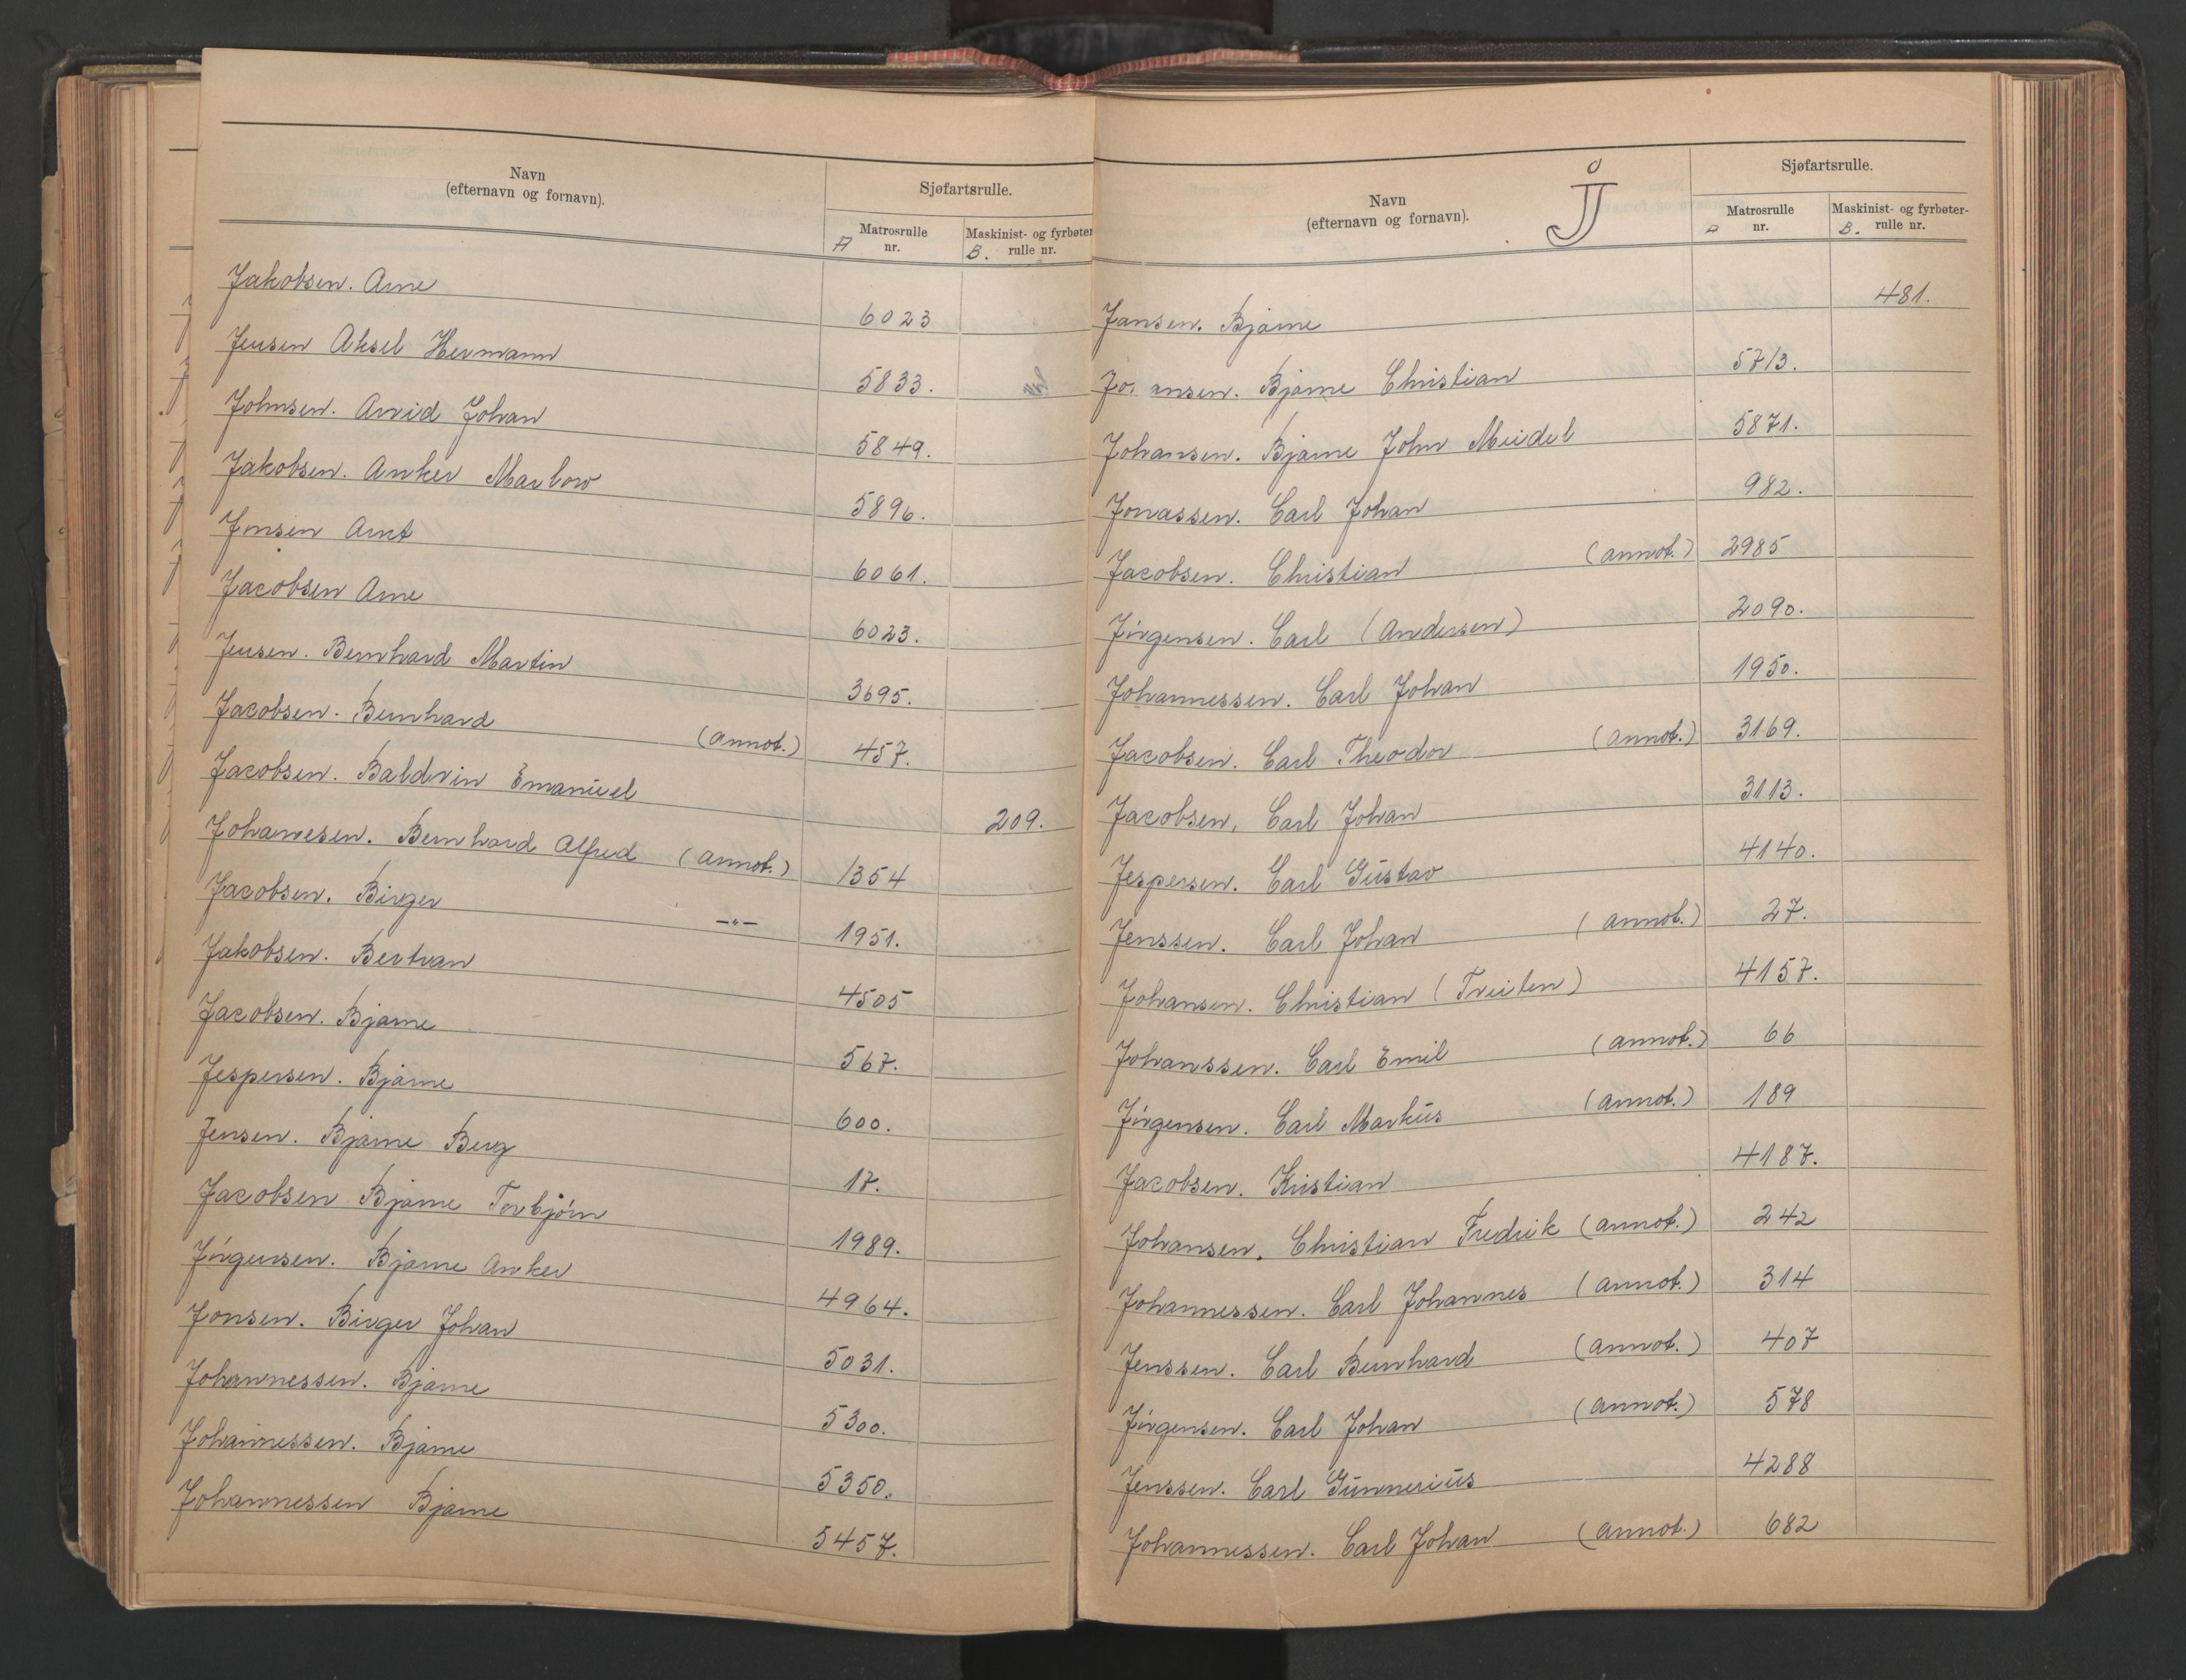 Navn
(efternavn og fornavn).
Sjøfartsrulle.
A Matrosrulle nr.
B. Maskinist- og fyrbøter rulle nr.
Jakobsen. Arne 6023
Jensen Aksel Hermann 5833.
Johnsen. Arvid Johan 5849.
Jakobsen. Anker Marlow 5896.
Jonsen Arnt 6061.
Jacobsen Arne 6023.
Jensen. Bernhard Martin 3695.
Jacobsen. Bernhard (annot.) 457.
Jacobsen. Baldvin Emanuel 209.
Johanesen. Bernhard Alfred (annot.) 1354
Jacobsen. Birger —"— 1951.
Jakobsen. Bertran 4505
Jacobsen. Bjarne 567.
Jespersen. Bjarne 600.
Jensen. Bjarne Berg 17.
Jacobsen Bjarne Torbjørn 1989.
Jörgensen. Bjarne Anker 4964.
Jonsen. Birger Johan 5031.
Johannessen. Bjarne 5300.
Johannessen. Bjarne 5350.
Johannessen Bjarne 5457.
Navn
(efternavn og fornavn).
J
Sjøfartsrulle.
A Matrosrulle nr.
B. Maskinist- og fyrbøter- rulle nr.
Jansen. Bjarne 481.
Jo. ansen. Bjarne Christian 5713.
Johansen. Bjarne John Meidel 5871.
Jonassen. Carl Johan 982.
Jacobsen. Christian (annot.) 2985
Jörgensen. Carl (Andersen) 2090.
Johannessen. Carl Johan 1950.
Jacobsen. Carl Theodor (annot.) 3169.
Jacobsen, Carl Johan 3113.
Jespersen. Carl Gustav 4140.
Jenssen. Carl Johan (annot.) 27.
Johansen. Christian (Treiten) 4157.
Johanssen. Carl Emil (annot.) 66
Jörgensen. Carl Markus (annot.) 189
Jacobsen. Kristian 4187.
Johansen. Christian Fredrik (annot.) 242
Johannessen. Carl Johannes (annot.) 314
Jenssen. Carl Bernhard (annot.) 407
Jörgensen. Carl Johan (annot.) 578
Jenssen. Carl Gunnerius 4288
Johannessen. Carl Johan (annot.) 682